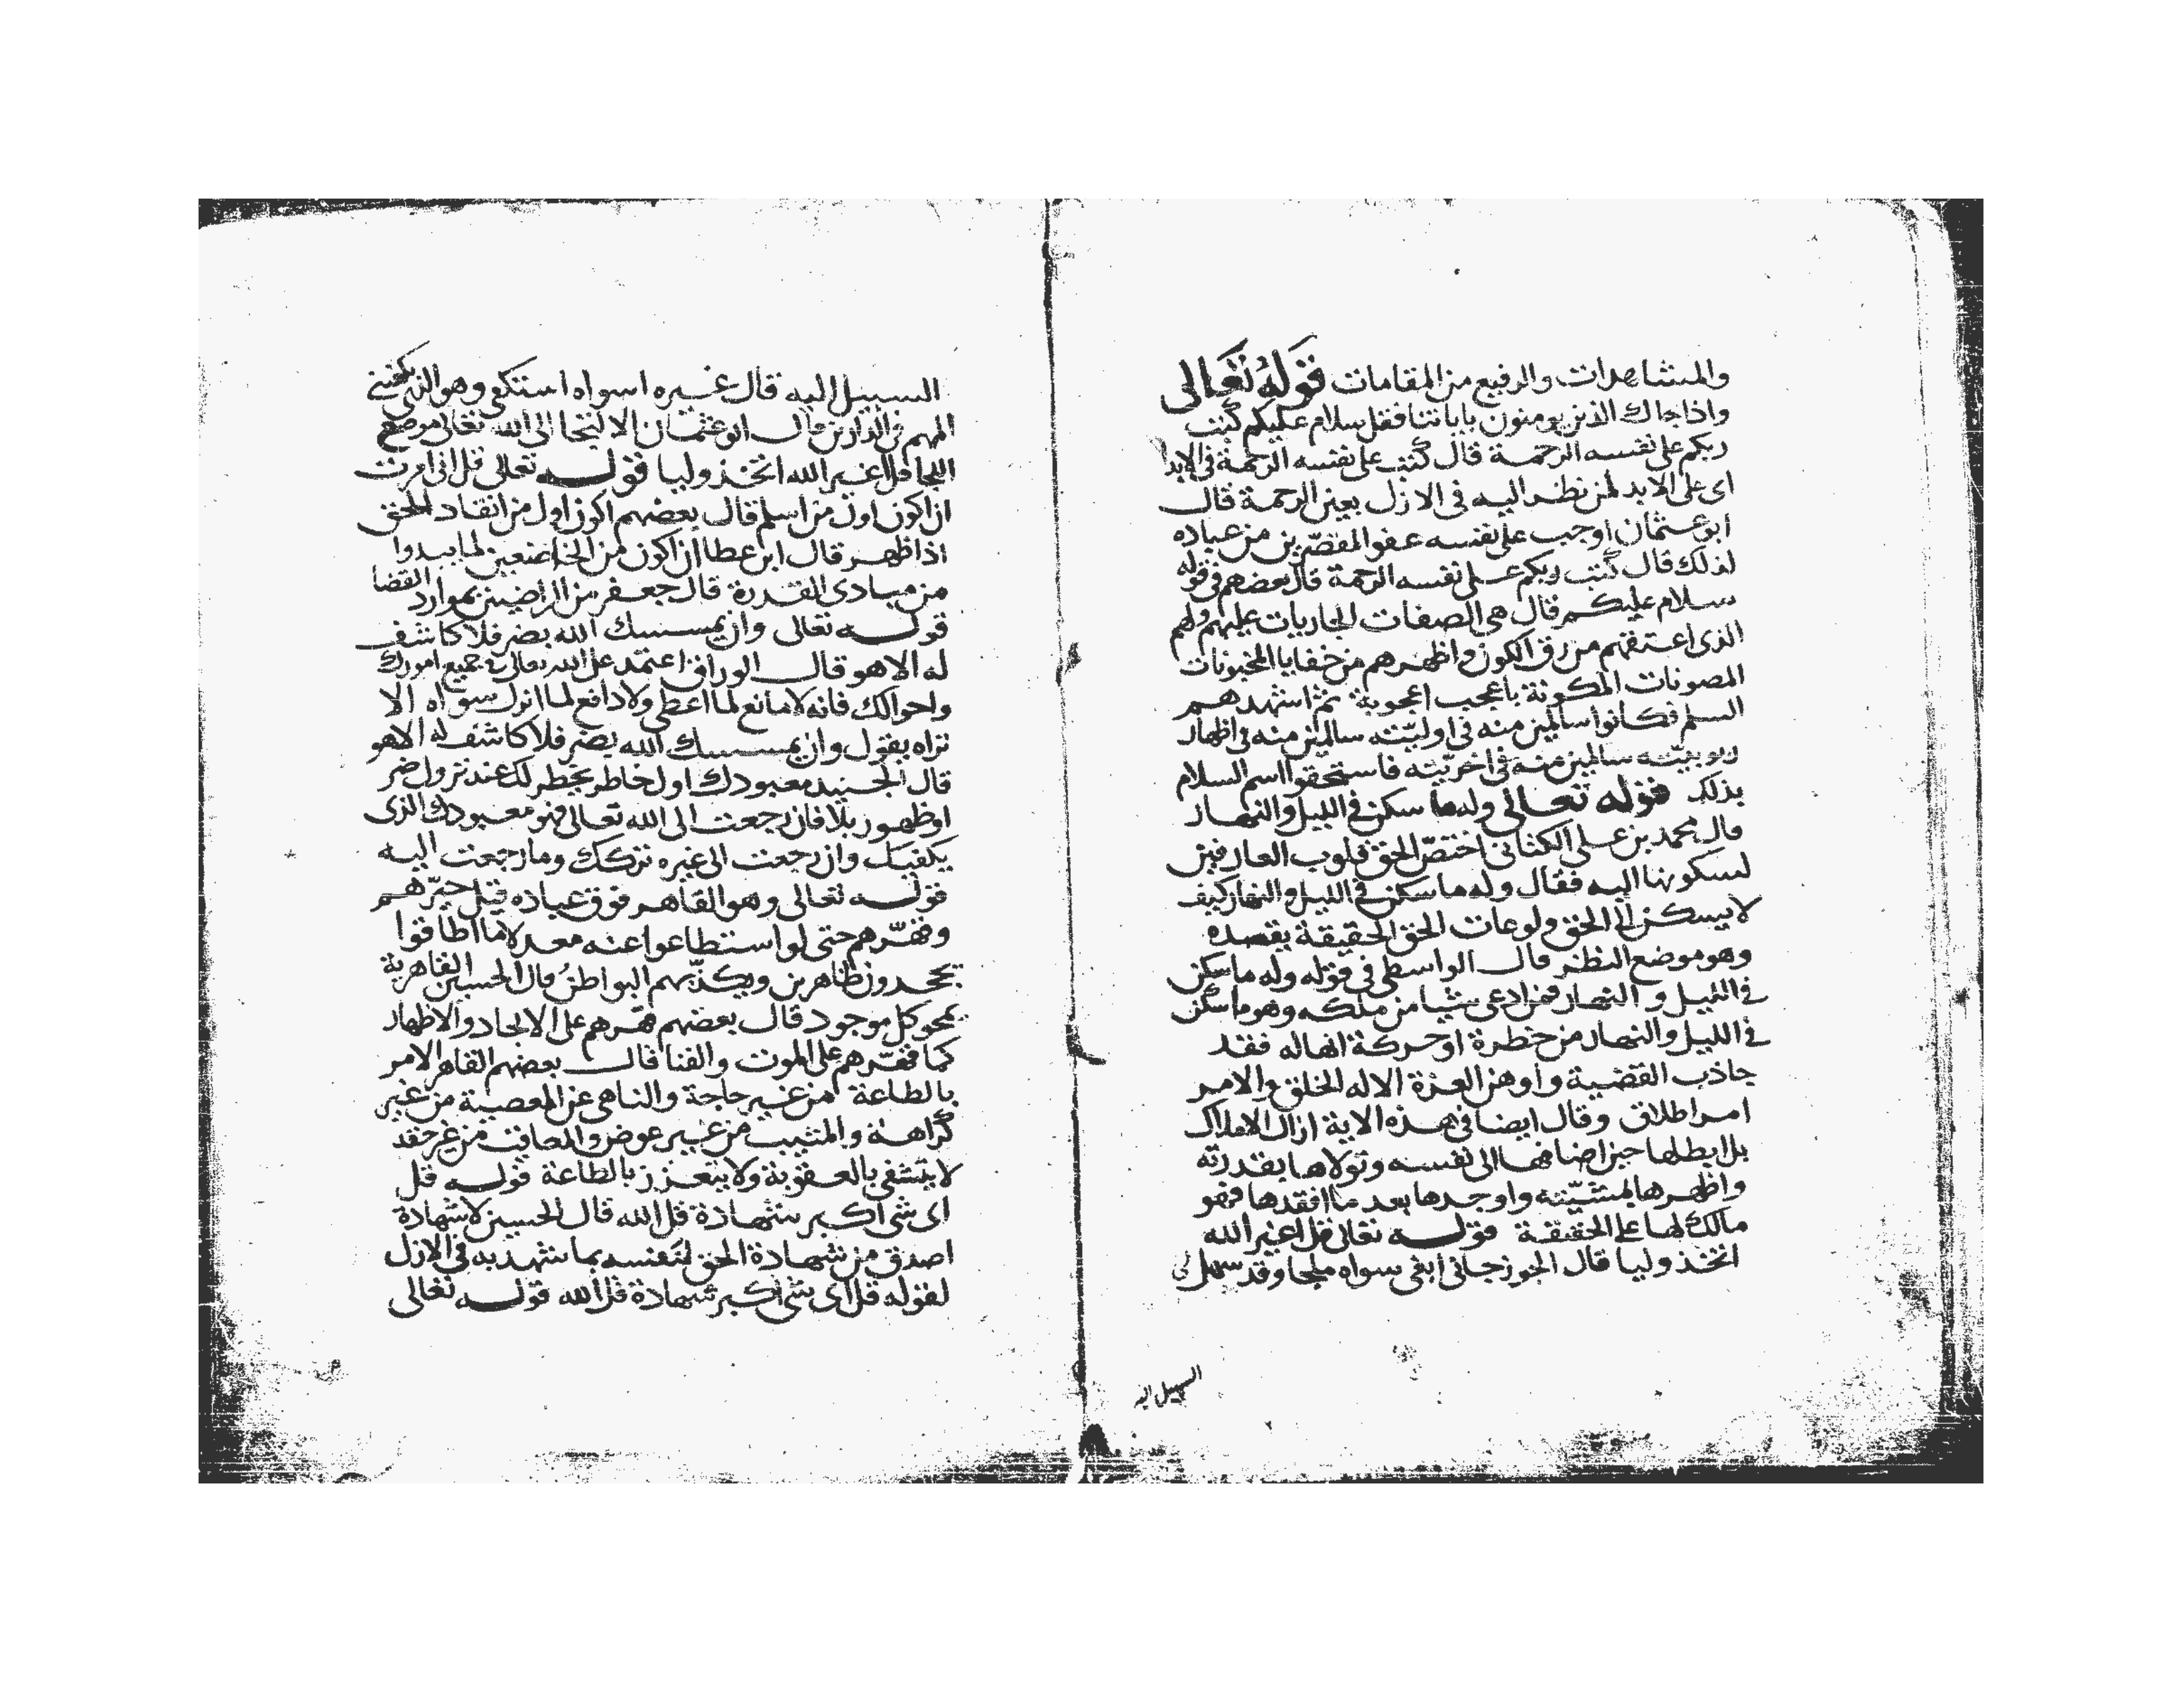 والمشاهدات والرفيع من المقامات قوله تعالى
واذا جاك الذين يومنون باياتنا فقل سلام عليكم كتب
ربكم على نفسه الرحمة قال كتب على نفسه الرحمة في الابد
اى على الابد لمن نظر اليه في الازل بعين الرحمة قال
ابو عثمان اوجب على نفسه عفو المقصّرين من عباده
لذلك قال كتب ربكم على نفسه الرحمة قال بعضهم في قوله
سلام عليكم قال هي الصفات الجاريات عليهم ولهم
الذى اعتقهم من رق الكون واظهرهم من خفايا المخبونات
المصونات المكونة باعجب اعجوبة ثم اشهدهم
السلم فكانوا سالمين منه في اوليّته سالمين منه في اظهار
ربوبيّته سالمين منه في اخريّته فاستحقوا اسم السلام
بذلك قوله تعالى وله ما سكن في الليل والنهار
قال محمد بن على الكتانى اختصّ الحق قلوب العارفين
لسكونها اليه فقال وله ما سكن في الليل والنهار كيف
لا يسكن الى الحق ولوعات الحق الحقيقة بقصده
وهو موضع النظر قال الواسطى في قوله وله ما سكن
في الليل و النهار فمن ادعى شيا من ملكه وهو ما سكن
في الليل والنهار من خطرة او حركة انها له فقد
جاذب القضية واوهن العزة الا له الخلق والامر
امر اطلاق وقال ايضا في هذه الاية ازال الاملاك
بل ابطلها حين اضافها الى نفسه وتولاها بقدرته
واظهرها بمشيّته واوجدها بعد ما افقدها فهو
مالك لها على الحقيقة قوله تعالى قل اغير الله
اتخذ وليا قال الجوزجانى ابغى سواه ملجا وقد سهل لى
السبيل اليه
السبيل اليه قال غيره اسواه استكفى وهو الذى يكفينى
المهم في الدارين قال ابو عثمان الالتجا الى الله تعالى موضع
اللجا قل اغير الله اتخذ وليا قوله تعالى قل انى امرت
ان اكون اول من اسلم قال بعضهم اكون اول من انقاد للحق
اذا ظهر قال ابن عطا ان اكون من الخاضعين لما يبدوا
من مبادى القدرة قال جعفر من الراضين بموارد القضا
قوله تعالى وان يمسسك الله بضر فلا كاشف
له الا هو قال الوراق اعتمد على الله تعالى في جميع امورك
واحوالك فانه لا مانع لما اعطى ولا دافع لما انزل سواه الا
تراه يقول وان يمسسك الله بضر فلا كاشف له الا هو
قال الجنيد معبودك اول خاطر يخطر لك عند نزول ضر
او ظهور بلا فان رجعت الى الله تعالى فهو معبودك الذى
يكفيك وان رجعت الى غيره تركك وما رجعت اليه
قوله تعالى وهو القاهر فوق عباده قيل جبرّهم
وقهّرهم حتى لو استطاعوا عنه معدلا ما اطاقوا
يجحدون ظاهرين ويكذّبهم البواطن قال الحسين القاهرية
تمحو كل موجود قال بعضهم قهرهم على الايجاد والاظهار
كما قهّرهم على الموت والفنا قال بعضهم القاهر الامر
بالطاعة من غير حاجة والناهى عن المعصية من غير
كراهة والمثيب من غير عوض والمعاقب من غير حقد
لا يتشفى بالعقوبة ولا يتعزز بالطاعة قوله قل
اى شى اكبر شهادة قل الله قال الحسين لا شهادة
اصدق من شهادة الحق لنفسه بما شهد به في الازل
لقوله قل اى شى اكبر شهادة قل الله قوله تعالى